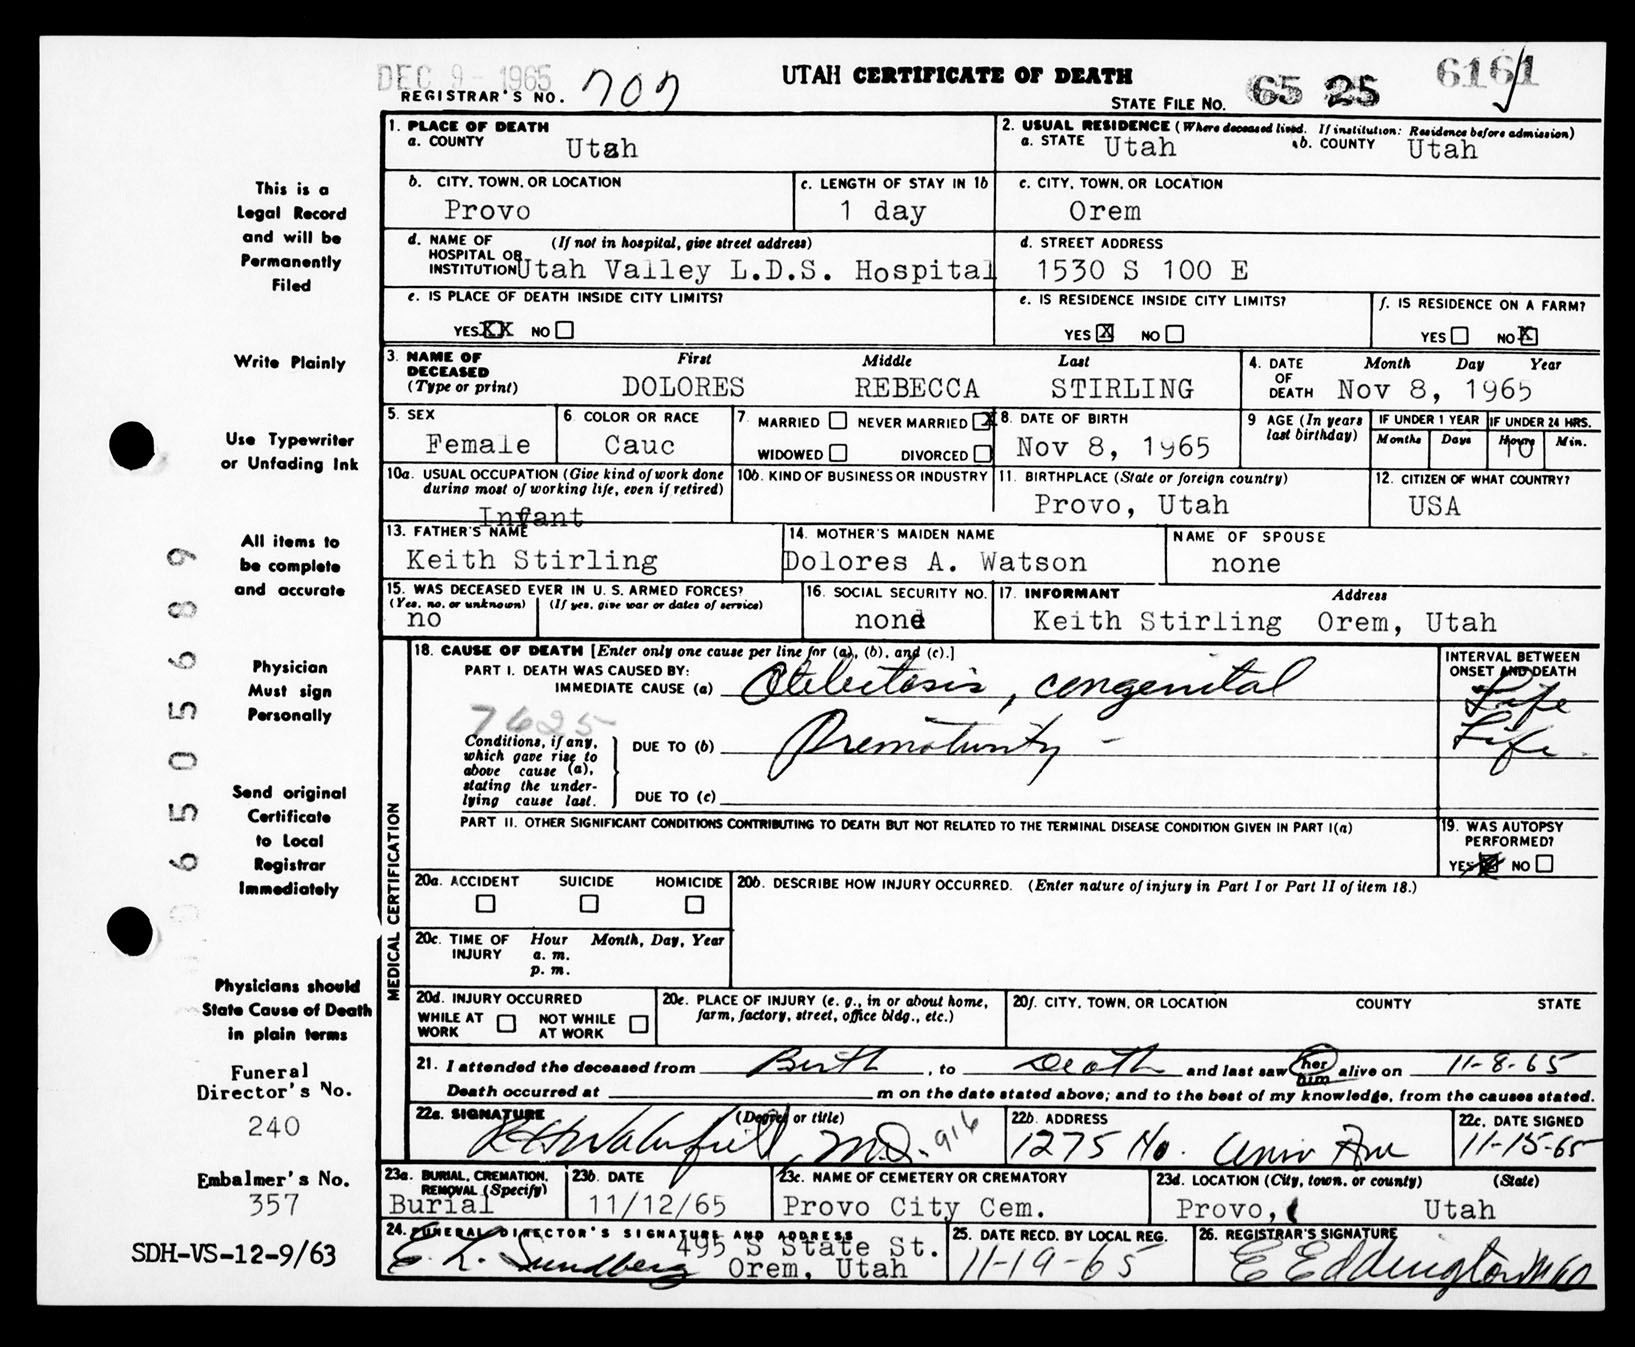 DEC 9 - 1965
REGISTRAR'S NO. 707
UTAH CERTIFICATE OF DEATH
STATE FILE No. 65 25 6161
1. PLACE OF DEATH
a. COUNTY Utah
2. USUAL RESIDENCE (Where deceased lived. If institution: Residence before admission)
a. STATE Utah b. COUNTY Utah
b. CITY, TOWN, OR LOCATION Provo
c. LENGTH OF STAY IN 1b 1 day
c. CITY, TOWN, OR LOCATION Orem
d. NAME OF HOSPITAL OR INSTITUTION (If not in hospital, give street address) Utah Valley L.D.S. Hospital
d. STREET ADDRESS 1530 S 100 E
e. IS PLACE OF DEATH INSIDE CITY LIMITS? YES XX NO
e. IS RESIDENCE INSIDE CITY LIMITS? YES X NO
f. IS RESIDENCE ON A FARM? YES NO X
3. NAME OF DECEASED (Type or print) First Middle Last
DOLORES REBECCA STIRLING
4. DATE OF DEATH Month Day Year
Nov 8, 1965
5. SEX Female
6. COLOR OR RACE Cauc
7. MARRIED NEVER MARRIED X
WIDOWED DIVORCED
8. DATE OF BIRTH Nov 8, 1965
9 AGE (In years last birthday)
IF UNDER 1 YEAR Months Days
IF UNDER 24 HRS. Hours Min.
10
10a. USUAL OCCUPATION (Give kind of work done during most of working life, even if retired) Infant
10b. KIND OF BUSINESS OR INDUSTRY
11. BIRTHPLACE (State or foreign country) Provo, Utah
12. CITIZEN OF WHAT COUNTRY? USA
13. FATHER'S NAME Keith Stirling
14. MOTHER'S MAIDEN NAME Dolores A. Watson
NAME OF SPOUSE none
15. WAS DECEASED EVER IN U. S. ARMED FORCES?
(Yes, no, or unknown) (If yes, give war or dates of service)
no
16. SOCIAL SECURITY NO. none
17. INFORMANT Address
Keith Stirling Orem, Utah
18. CAUSE OF DEATH [Enter only one cause per line for (a), (b), and (c).]
PART I. DEATH WAS CAUSED BY:
IMMEDIATE CAUSE (a) Atelectasis, congenital
7625
Conditions, if any, which gave rise to above cause (a), stating the underlying cause last.
DUE TO (b) Prematurity -
DUE TO (c)
INTERVAL BETWEEN ONSET AND DEATH
Life
Life
PART II. OTHER SIGNIFICANT CONDITIONS CONTRIBUTING TO DEATH BUT NOT RELATED TO THE TERMINAL DISEASE CONDITION GIVEN IN PART I(a)
19. WAS AUTOPSY PERFORMED?
YES NO
MEDICAL CERTIFICATION
20a. ACCIDENT SUICIDE HOMICIDE
20b. DESCRIBE HOW INJURY OCCURRED. (Enter nature of injury in Part I or Part II of item 18.)
20c. TIME OF INJURY Hour a. m. p. m. Month, Day, Year
20d. INJURY OCCURRED
WHILE AT WORK NOT WHILE AT WORK
20e. PLACE OF INJURY (e. g., in or about home, farm, factory, street, office bldg., etc.)
20f. CITY, TOWN, OR LOCATION COUNTY STATE
21. I attended the deceased from Birth, to Death and last saw her him alive on 11-8-65
Death occurred at m on the date stated above; and to the best of my knowledge, from the causes stated.
22a. SIGNATURE (Degree or title)
M.D. 916
22b. ADDRESS 1275 No. Univ Ave
22c. DATE SIGNED 11-15-65
23a. BURIAL, CREMATION, REMOVAL (Specify) Burial
23b. DATE 11/12/65
23c. NAME OF CEMETERY OR CREMATORY Provo City Cem.
23d. LOCATION (City, town, or county) (State)
Provo, Utah
24. FUNERAL DIRECTOR'S SIGNATURE AND ADDRESS
E. L. Sundberg 495 S State St.
Orem, Utah
25. DATE RECD. BY LOCAL REG. 11-19-65
26. REGISTRAR'S SIGNATURE
E Eddington
This is a
Legal Record
and will be
Permanently
Filed
Write Plainly
Use Typewriter
or Unfading Ink
All items to
be complete
and accurate
Physician
Must sign
Personally
Send original
Certificate
to Local
Registrar
Immediately
Physicians should
State Cause of Death
in plain terms
Funeral
Director's No.
240
Embalmer's No.
357
SDH-VS-12-9/63